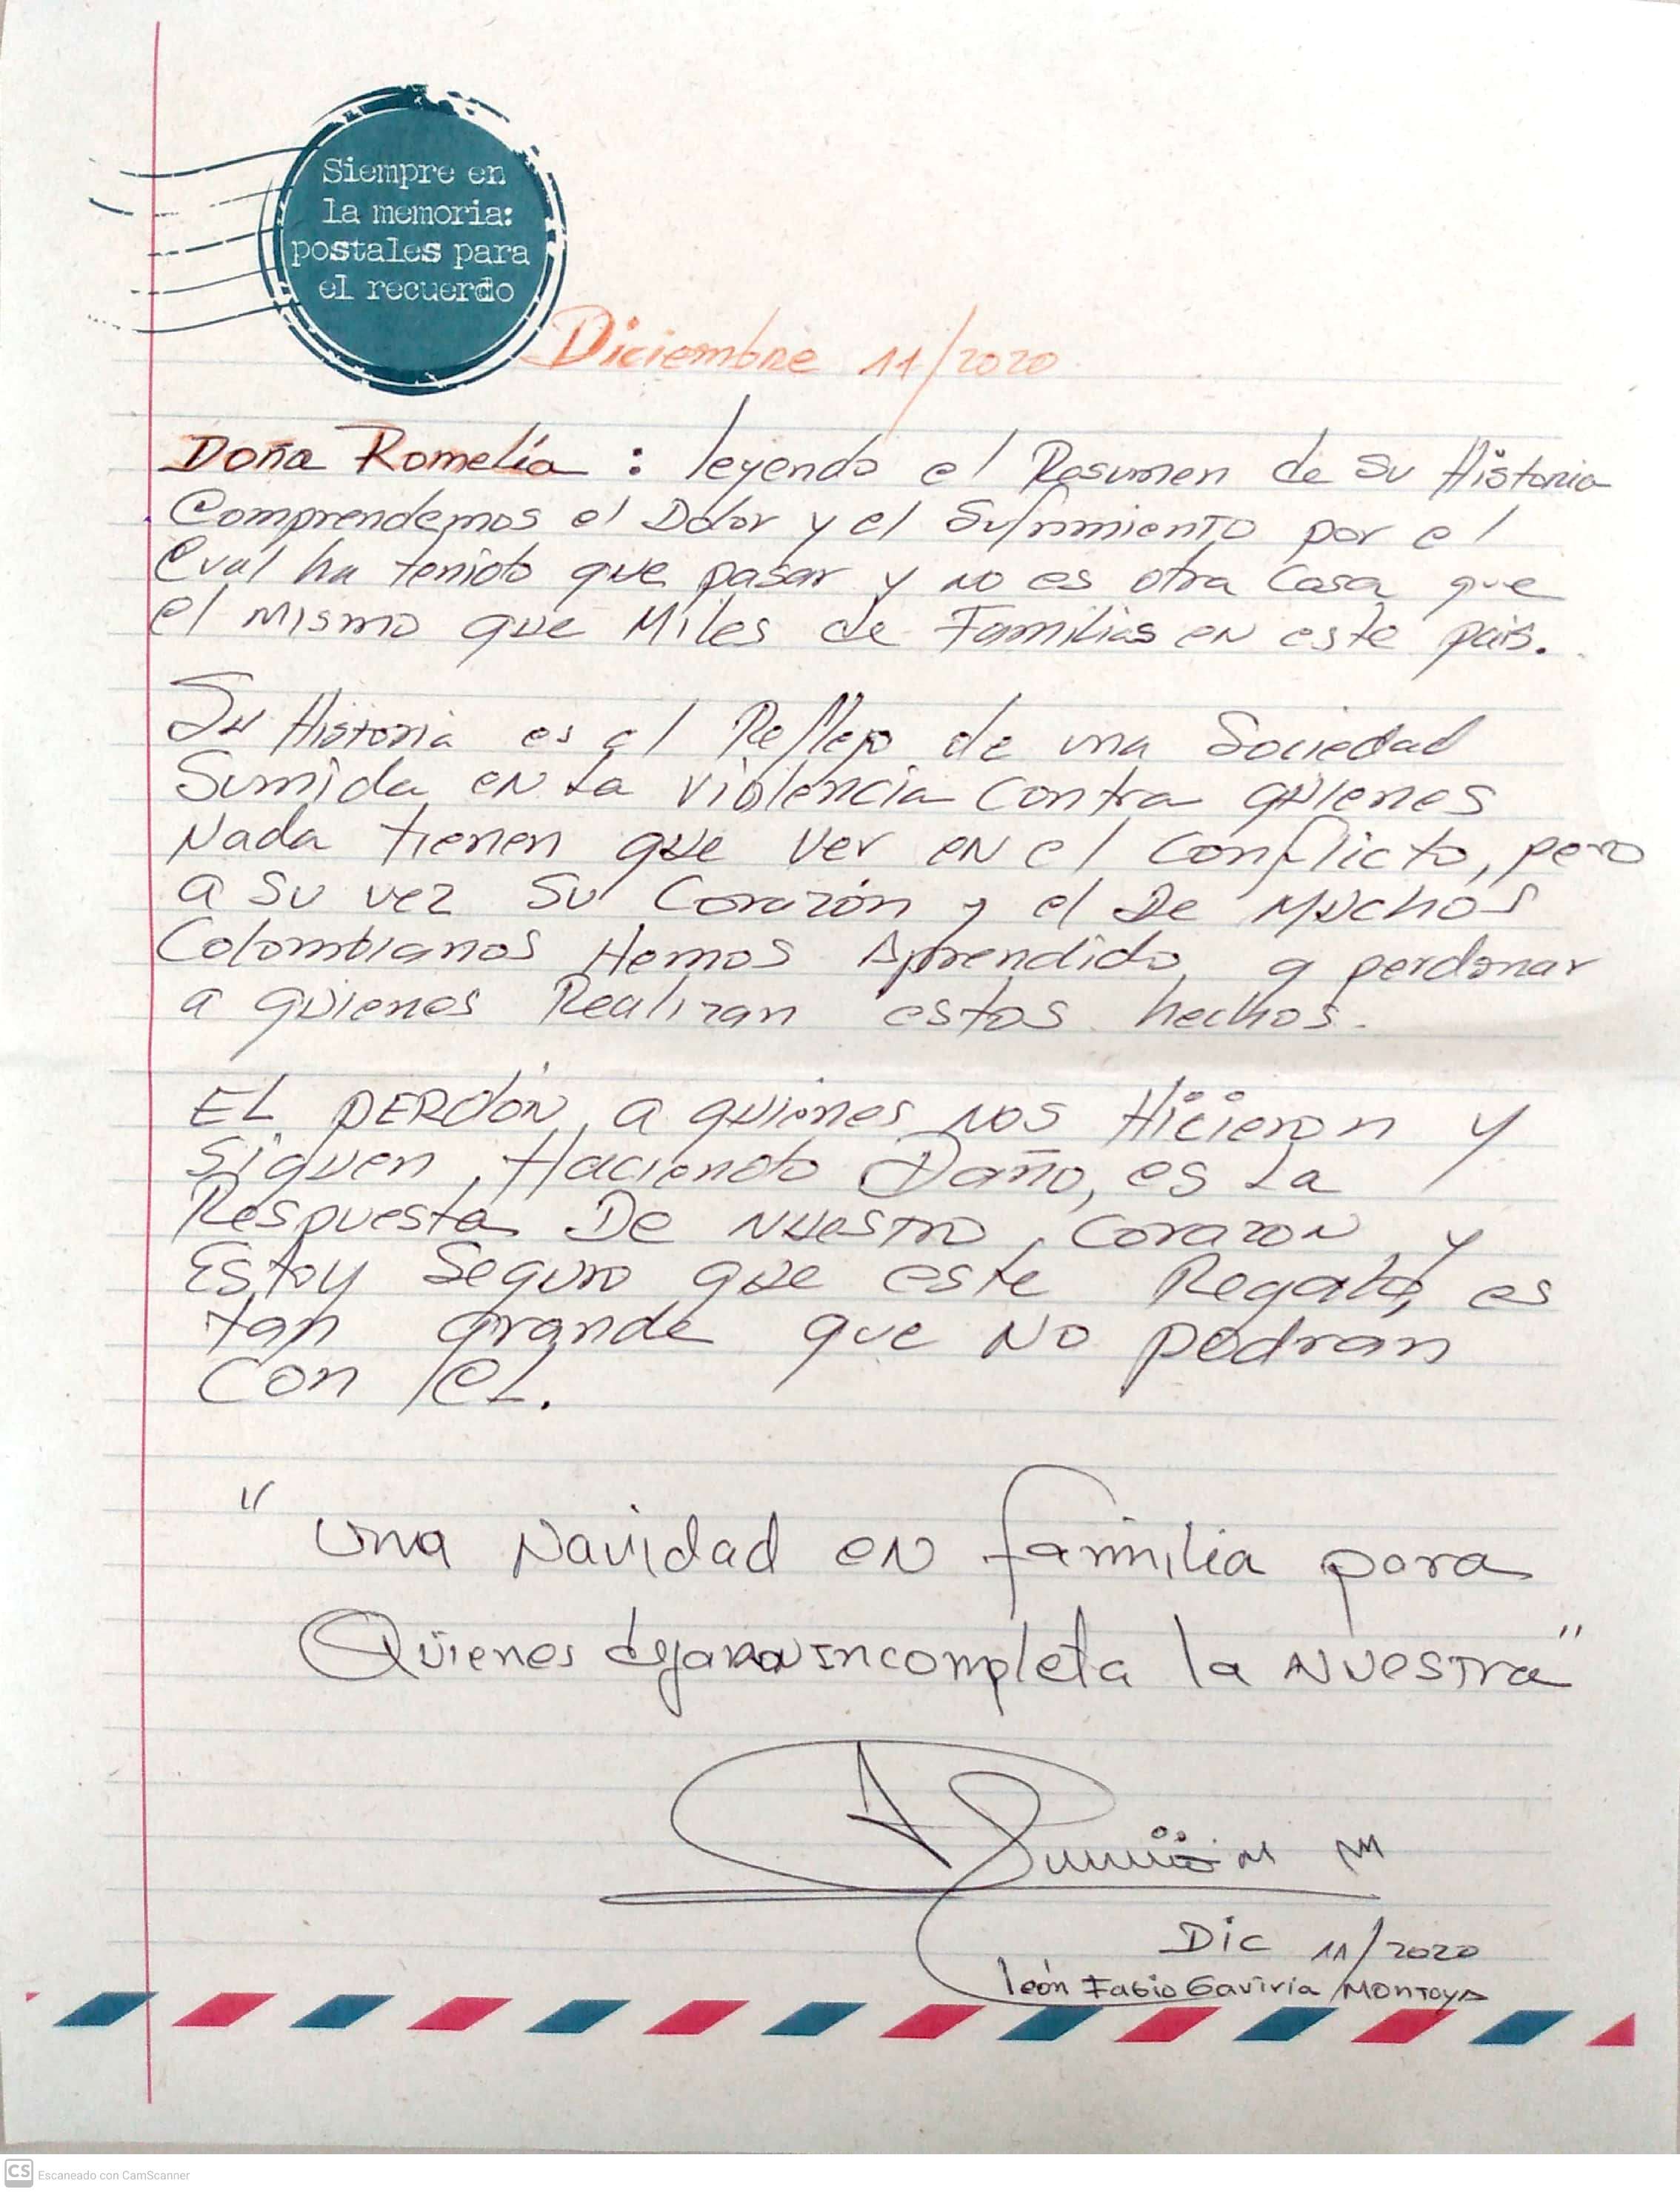 Siempre en
la memoria:
postales para
el recuerdo
Diciembre 11/2020
Doña Romelia : leyendo el Resumen de su Historia
Comprendemos el Dolor y el Sufrimiento por el
Cual ha tenido que pasar y no es otra Cosa que
el mismo que Miles de Familias en este pais.
Su Historia es el Reflejo de una Sociedad
Sumida en La violencia contra quienes
Nada tienen que ver en el conflicto, pero
a su vez su Corazón y el De Muchos
Colombianos Hemos Aprendido a perdonar
a quienes Realizan estos hechos.
EL PERDÓN a quienes nos Hicieron y
Siguen Haciendo Daño, es La
Respuesta De Nuestro Corazon y
Estoy Seguro que este Regalo, es
tan grande que No podran
Con EL.
" una Navidad en familia para
Quienes dejaran incompleta la Nuestra "
Dic 11/2020
león Fabio Gaviria Montoya
CS Escaneado con CamScanner